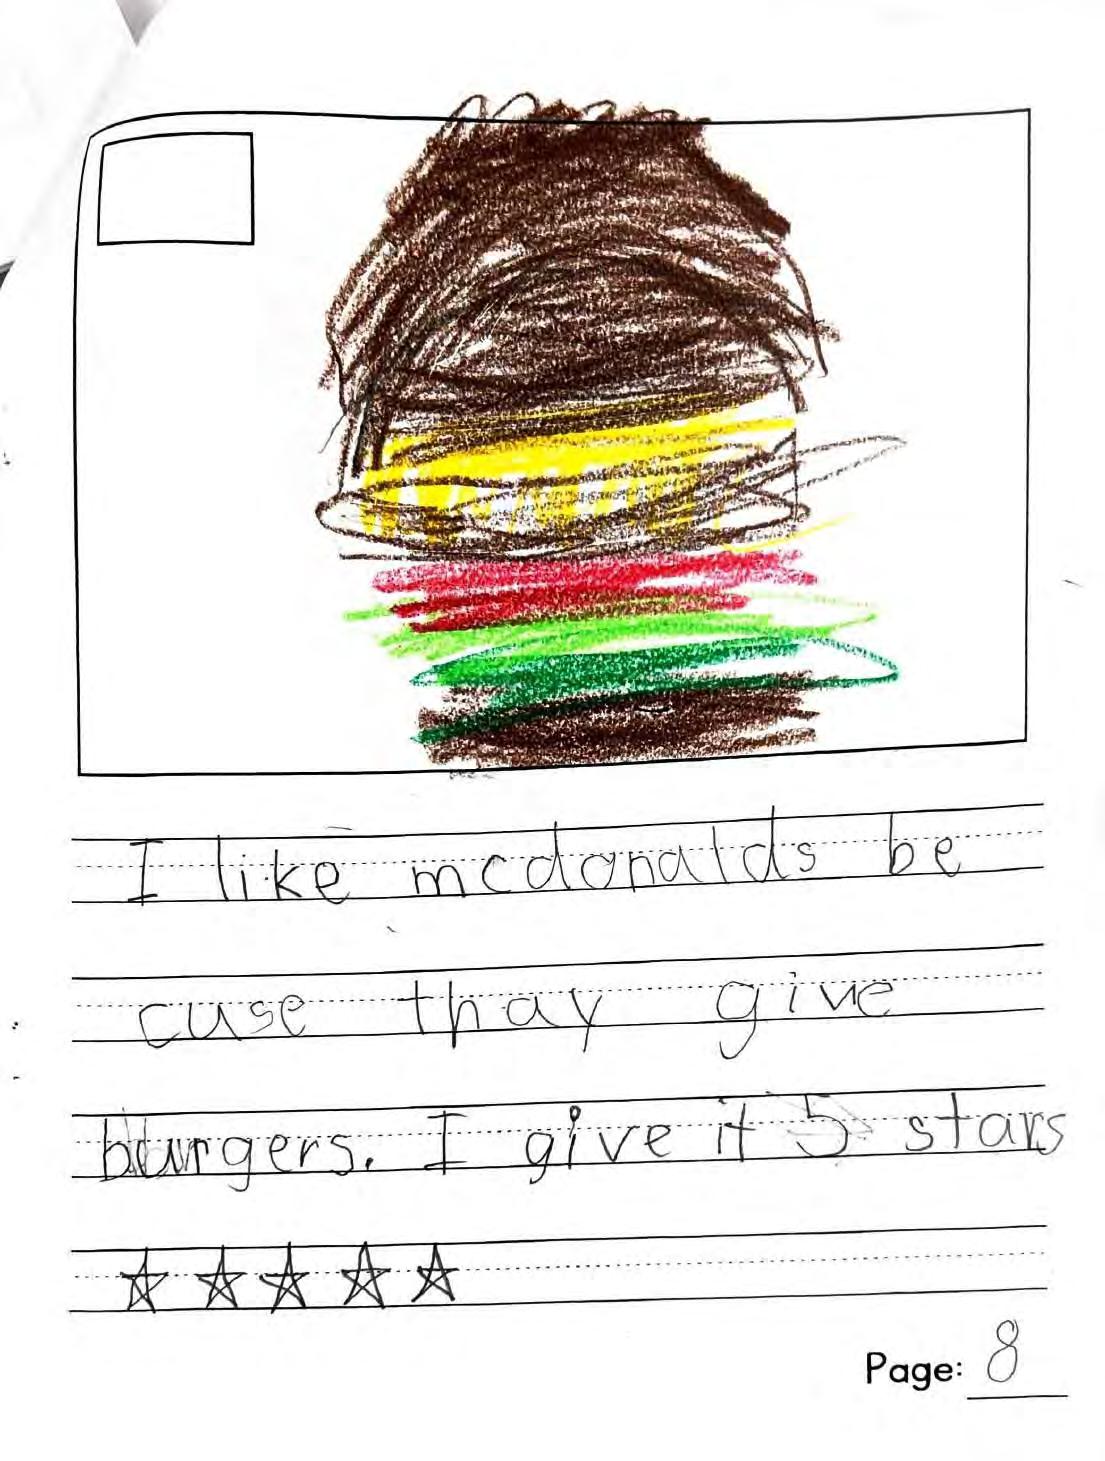 I like mcdonalds be
cuse thay give
burgers. I give it 5 stars
☆ ☆ ☆ ☆ ☆
Page: 8